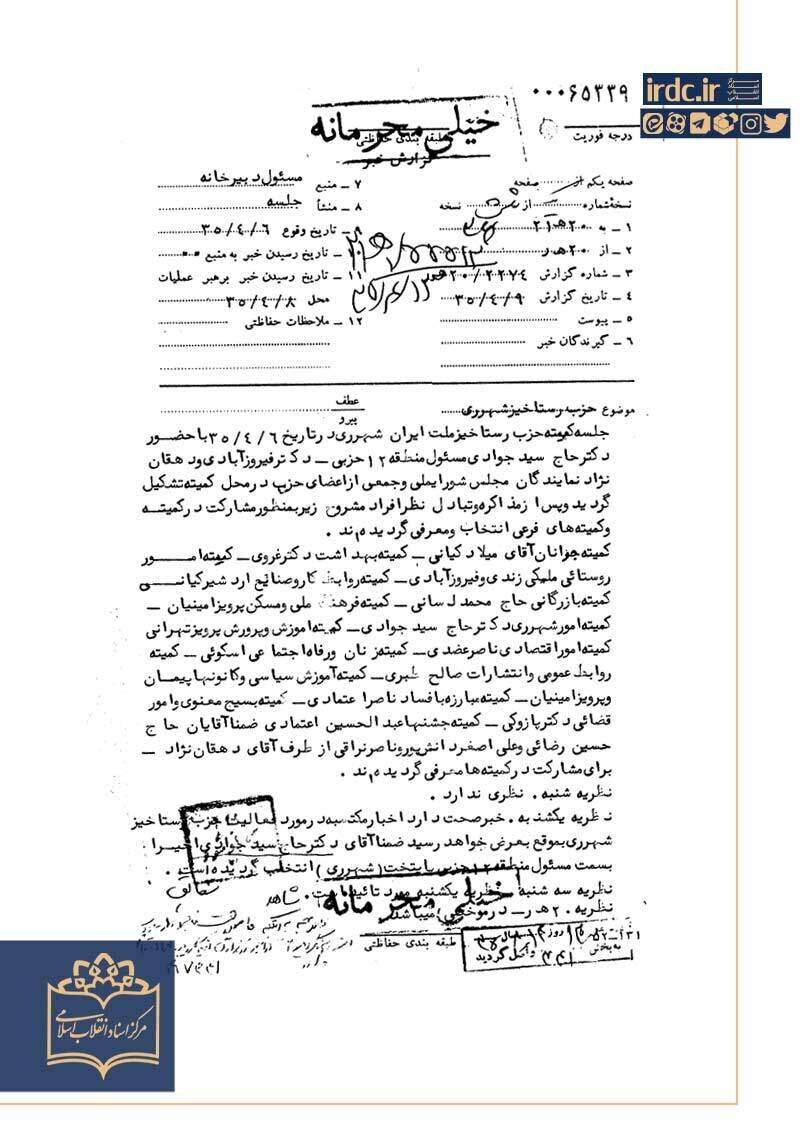 irdc.ir
مرکز اسناد انقلاب اسلامی
۰۰۰۶۵۳۳۹
درجه فوریت
خیلی محرمانه
طبقه بندی حفاظتی
گزارش خبر
صفحه یکم از صفحه
نسخه شماره از نسخه
۱ ـ به ۲۰ هـ ۲۱
۲ ـ از ۲۰ هـ ر
۳ ـ شماره گزارش ۲۰/۲۲۷۴ هـ ر
۴ ـ تاریخ گزارش ۳۵/۴/۹
۵ ـ پیوست
۶ ـ گیرندگان خبر
۷ ـ منبع مسئول دبیرخانه
۸ ـ منشأ جلسه
۹ ـ تاریخ وقوع ۳۵/۴/۶
۱۰ ـ تاریخ رسیدن خبر به منبع
۱۱ ـ تاریخ رسیدن خبر برهبر عملیات
محل ۳۵/۴/۸
۱۲ ـ ملاحظات حفاظتی
موضوع حزب رستاخیز شهرری
عطف
پیرو
جلسه کمیته حزب رستاخیز ملت ایران شهرری در تاریخ ۳۵/۴/۶ با حضور
دکتر حاج سید جوادی مسئول منطقه ۱۲ حزبی ـ دکتر فیروزآبادی و دهقان
نژاد نمایندگان مجلس شورایملی و جمعی از اعضای حزب در محل کمیته تشکیل
گردید و پس از مذاکره و تبادل نظر افراد مشروح زیر بمنظور مشارکت در کمیته
و کمیته های فرعی انتخاب و معرفی گردیده‌ند .
کمیته جوانان آقای میلاد کیانی ـ کمیته بهداشت دکتر غروی ـ کمیته امور
روستائی ملکی زندی و فیروزآبادی ـ کمیته روابط کار و صنایع اردشیر کیانی
کمیته بازرگانی حاج محمد لسانی ـ کمیته فرهنگ ملی و مسکن پرویز امینیان ـ
کمیته امور شهرری دکتر حاج سید جوادی ـ کمیته اموزش و پرورش پرویز تهرانی
کمیته امور اقتصادی ناصر عضدی ـ کمیته زنان و رفاه اجتماعی اسکوئی ـ کمیته
روابط عمومی و انتشارات صالح طبری ـ کمیته آموزش سیاسی و کانونها پیمان
و پرویز امینیان ـ کمیته مبارزه با فساد ناصر اعتمادی ـ کمیته بسیج معنوی و امور
قضائی دکتر پازوکی ـ کمیته جشنها عبدالحسین اعتمادی ضمنا آقایان حاج
حسین رضائی و علی اصغر دانش پور و ناصر نراقی از طرف آقای دهقان نژاد ـ
برای مشارکت در کمیته ها معرفی گردیده‌ند .
نظریه شنبه . نظری ندارد .
نظریه یکشنبه . خبر صحت دارد اخبار مکتسبه در مورد فعالیت حزب رستاخیز
شهرری بموقع بعرض خواهد رسید ضمنا آقای دکتر حاج سید جوادی اخیرا
بسمت مسئول منطقه ۱۲ حزبی پایتخت (شهرری) انتخاب گردیده است .
نظریه سه شنبه . نظریه یکشنبه مورد تائید است .
نظریه . ۲ هـ ر ـ در مرخصی میباشد
خیلی محرمانه
طبقه بندی حفاظتی
روز
سال
به بخش ۳۳۱ واصل گردید
مرکز اسناد انقلاب اسلامی